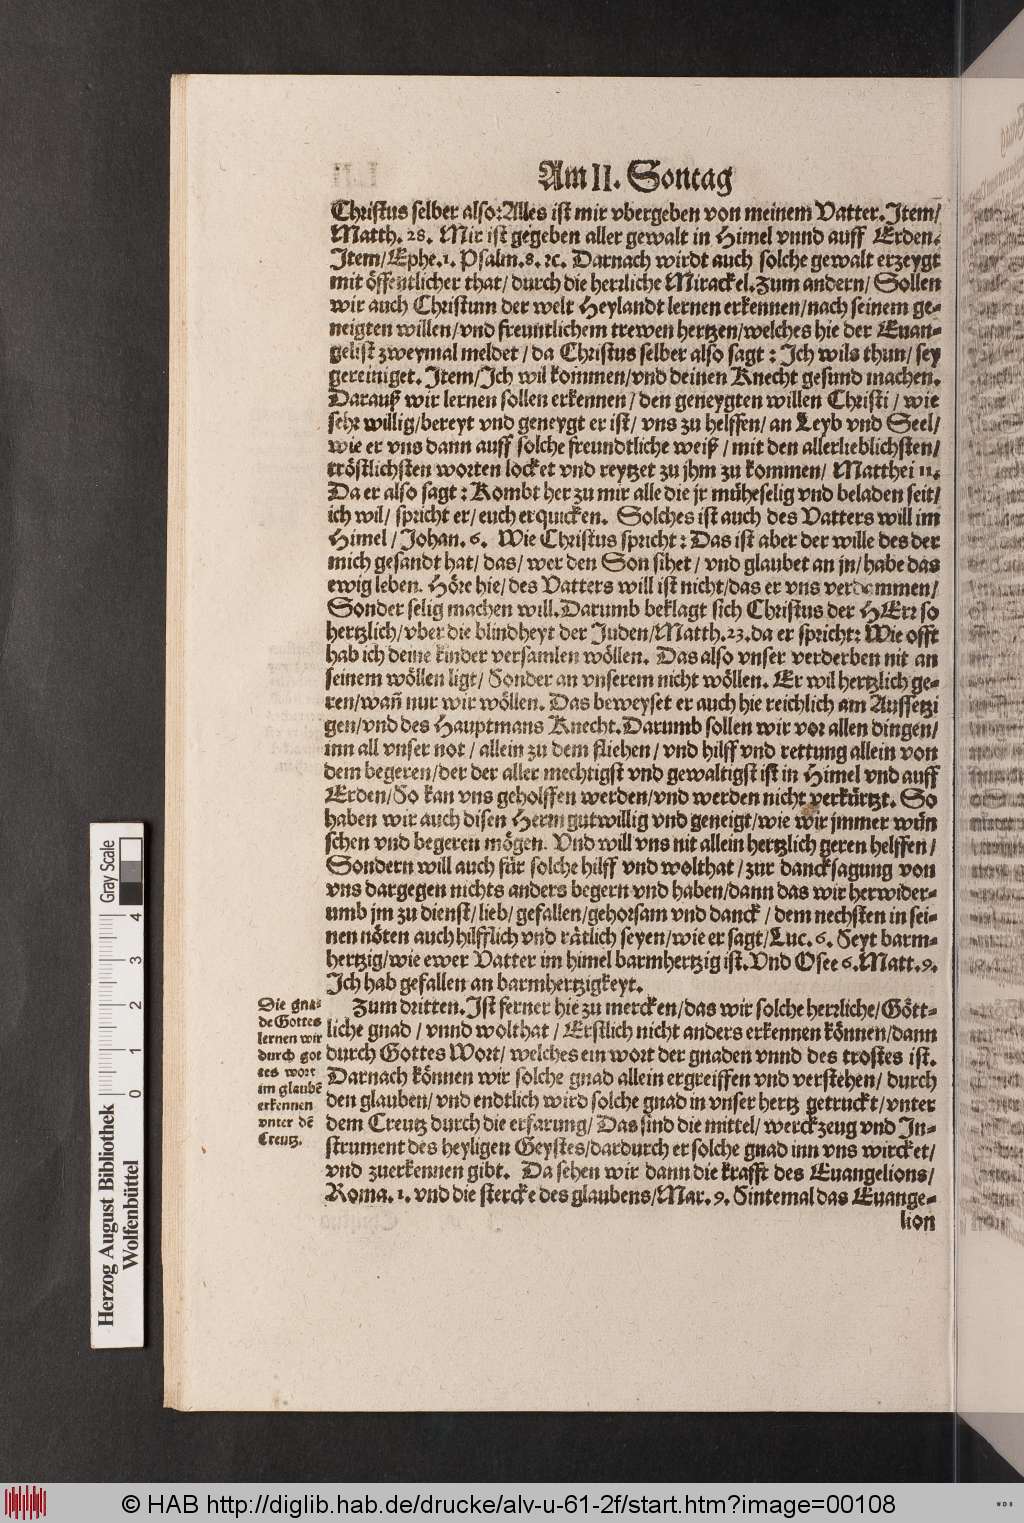 Am II. Sontag
Christus selber also: Alles ist mir vbergeben von meinem Vatter. Item/
Matth. 28. Mir ist gegeben aller gewalt in Himel vnnd auff Erden.
Item/ Ephe. 1. Psalm. 8. ꝛc. Darnach wirdt auch solche gewalt erzeygt
mit öffentlicher that/ durch die herrliche Mirackel. Zum andern/ Sollen
wir auch Christum der welt Heylandt lernen erkennen/ nach seinem ge-
neigten willen/ vnd freuntlichem trewen hertzen/ welches hie der Euan-
gelist zweymal meldet/ da Christus selber also sagt: Ich wils thun/ sey
gereiniget. Item/ Ich wil kommen/ vnd deinen Knecht gesund machen.
Darauß wir lernen sollen erkennen/ den geneygten willen Christi/ wie
sehr willig/ bereyt vnd geneygt er ist/ vns zu helffen/ an Leyb vnd Seel/
wie er vns dann auff solche freundtliche weiß/ mit den allerlieblichsten/
tröstlichsten worten locket vnd reytzet zu jhm zu kommen/ Matthei 11.
Da er also sagt: Kombt her zu mir alle die jr müheselig vnd beladen seit/
ich wil/ spricht er/ euch erquicken. Solches ist auch des Vatters will im
Himel/ Johan. 6. Wie Christus spricht: Das ist aber der wille des der
mich gesandt hat/ das/ wer den Son sihet/ vnd glaubet an jn/ habe das
ewig leben. Höre hie/ des Vatters will ist nicht/ das er vns verdammen/
Sonder selig machen will. Darumb beklagt sich Christus der HErr so
hertzlich/ vber die blindheyt der Juden/ Matth. 23. da er spricht: Wie offt
hab ich deine kinder versamlen wöllen. Das also vnser verderben nit an
seinem wöllen ligt/ Sonder an vnserem nicht wöllen. Er wil hertzlich ge-
ren/ wañ nur wir wöllen. Das beweyset er auch hie reichlich am Aussetzi
gen/ vnd des Hauptmans Knecht. Darumb sollen wir vor allen dingen/
inn all vnser not/ allein zu dem fliehen/ vnd hilff vnd rettung allein von
dem begeren/ der der aller mechtigst vnd gewaltigst ist in Himel vnd auff
Erden/ So kan vns geholffen werden/ vnd werden nicht verkürtzt. So
haben wir auch disen Herrn gutwillig vnd geneigt/ wie wir jmmer wün
schen vnd begeren mögen. Vnd will vns nit allein hertzlich geren helffen/
Sondern will auch für solche hilff vnd wolthat/ zur dancksagung von
vns dargegen nichts anders begern vnd haben/ dann das wir herwider-
umb jm zu dienst/ lieb/ gefallen/ gehorsam vnd danck/ dem nechsten in sei-
nen nöten auch hilfflich vnd rätlich seyen/ wie er sagt/ Luc. 6. Seyt barm-
hertzig/ wie ewer Vatter im himel barmhertzig ist. Vnd Osee 6. Matt. 9.
Ich hab gefallen an barmhertzigkeyt.
Die gna-
de Gottes
lernen wir
durch got
tes wort
im glaubẽ
erkennen
vnter dẽ
Creutz.
Zum dritten. Ist ferner hie zu mercken/ das wir solche herrliche/ Gött-
liche gnad/ vnnd wolthat/ Erstlich nicht anders erkennen können/ dann
durch Gottes Wort/ welches ein wort der gnaden vnnd des trostes ist.
Darnach können wir solche gnad allein ergreiffen vnd verstehen/ durch
den glauben/ vnd endtlich wird solche gnad in vnser hertz getruckt/ vnter
dem Creutz durch die erfarung/ Das sind die mittel/ werckzeug vnd In-
strument des heyligen Geystes/ dardurch er solche gnad inn vns wircket/
vnd zuerkennen gibt. Da sehen wir dann die krafft des Euangelions/
Roma. 1. vnd die stercke des glaubens/ Mar. 9. Sintemal das Euange-
lion
Gray Scale
0 1 2 3 4
Herzog August Bibliothek
Wolfenbüttel
© HAB http://diglib.hab.de/drucke/alv-u-61-2f/start.htm?image=00108